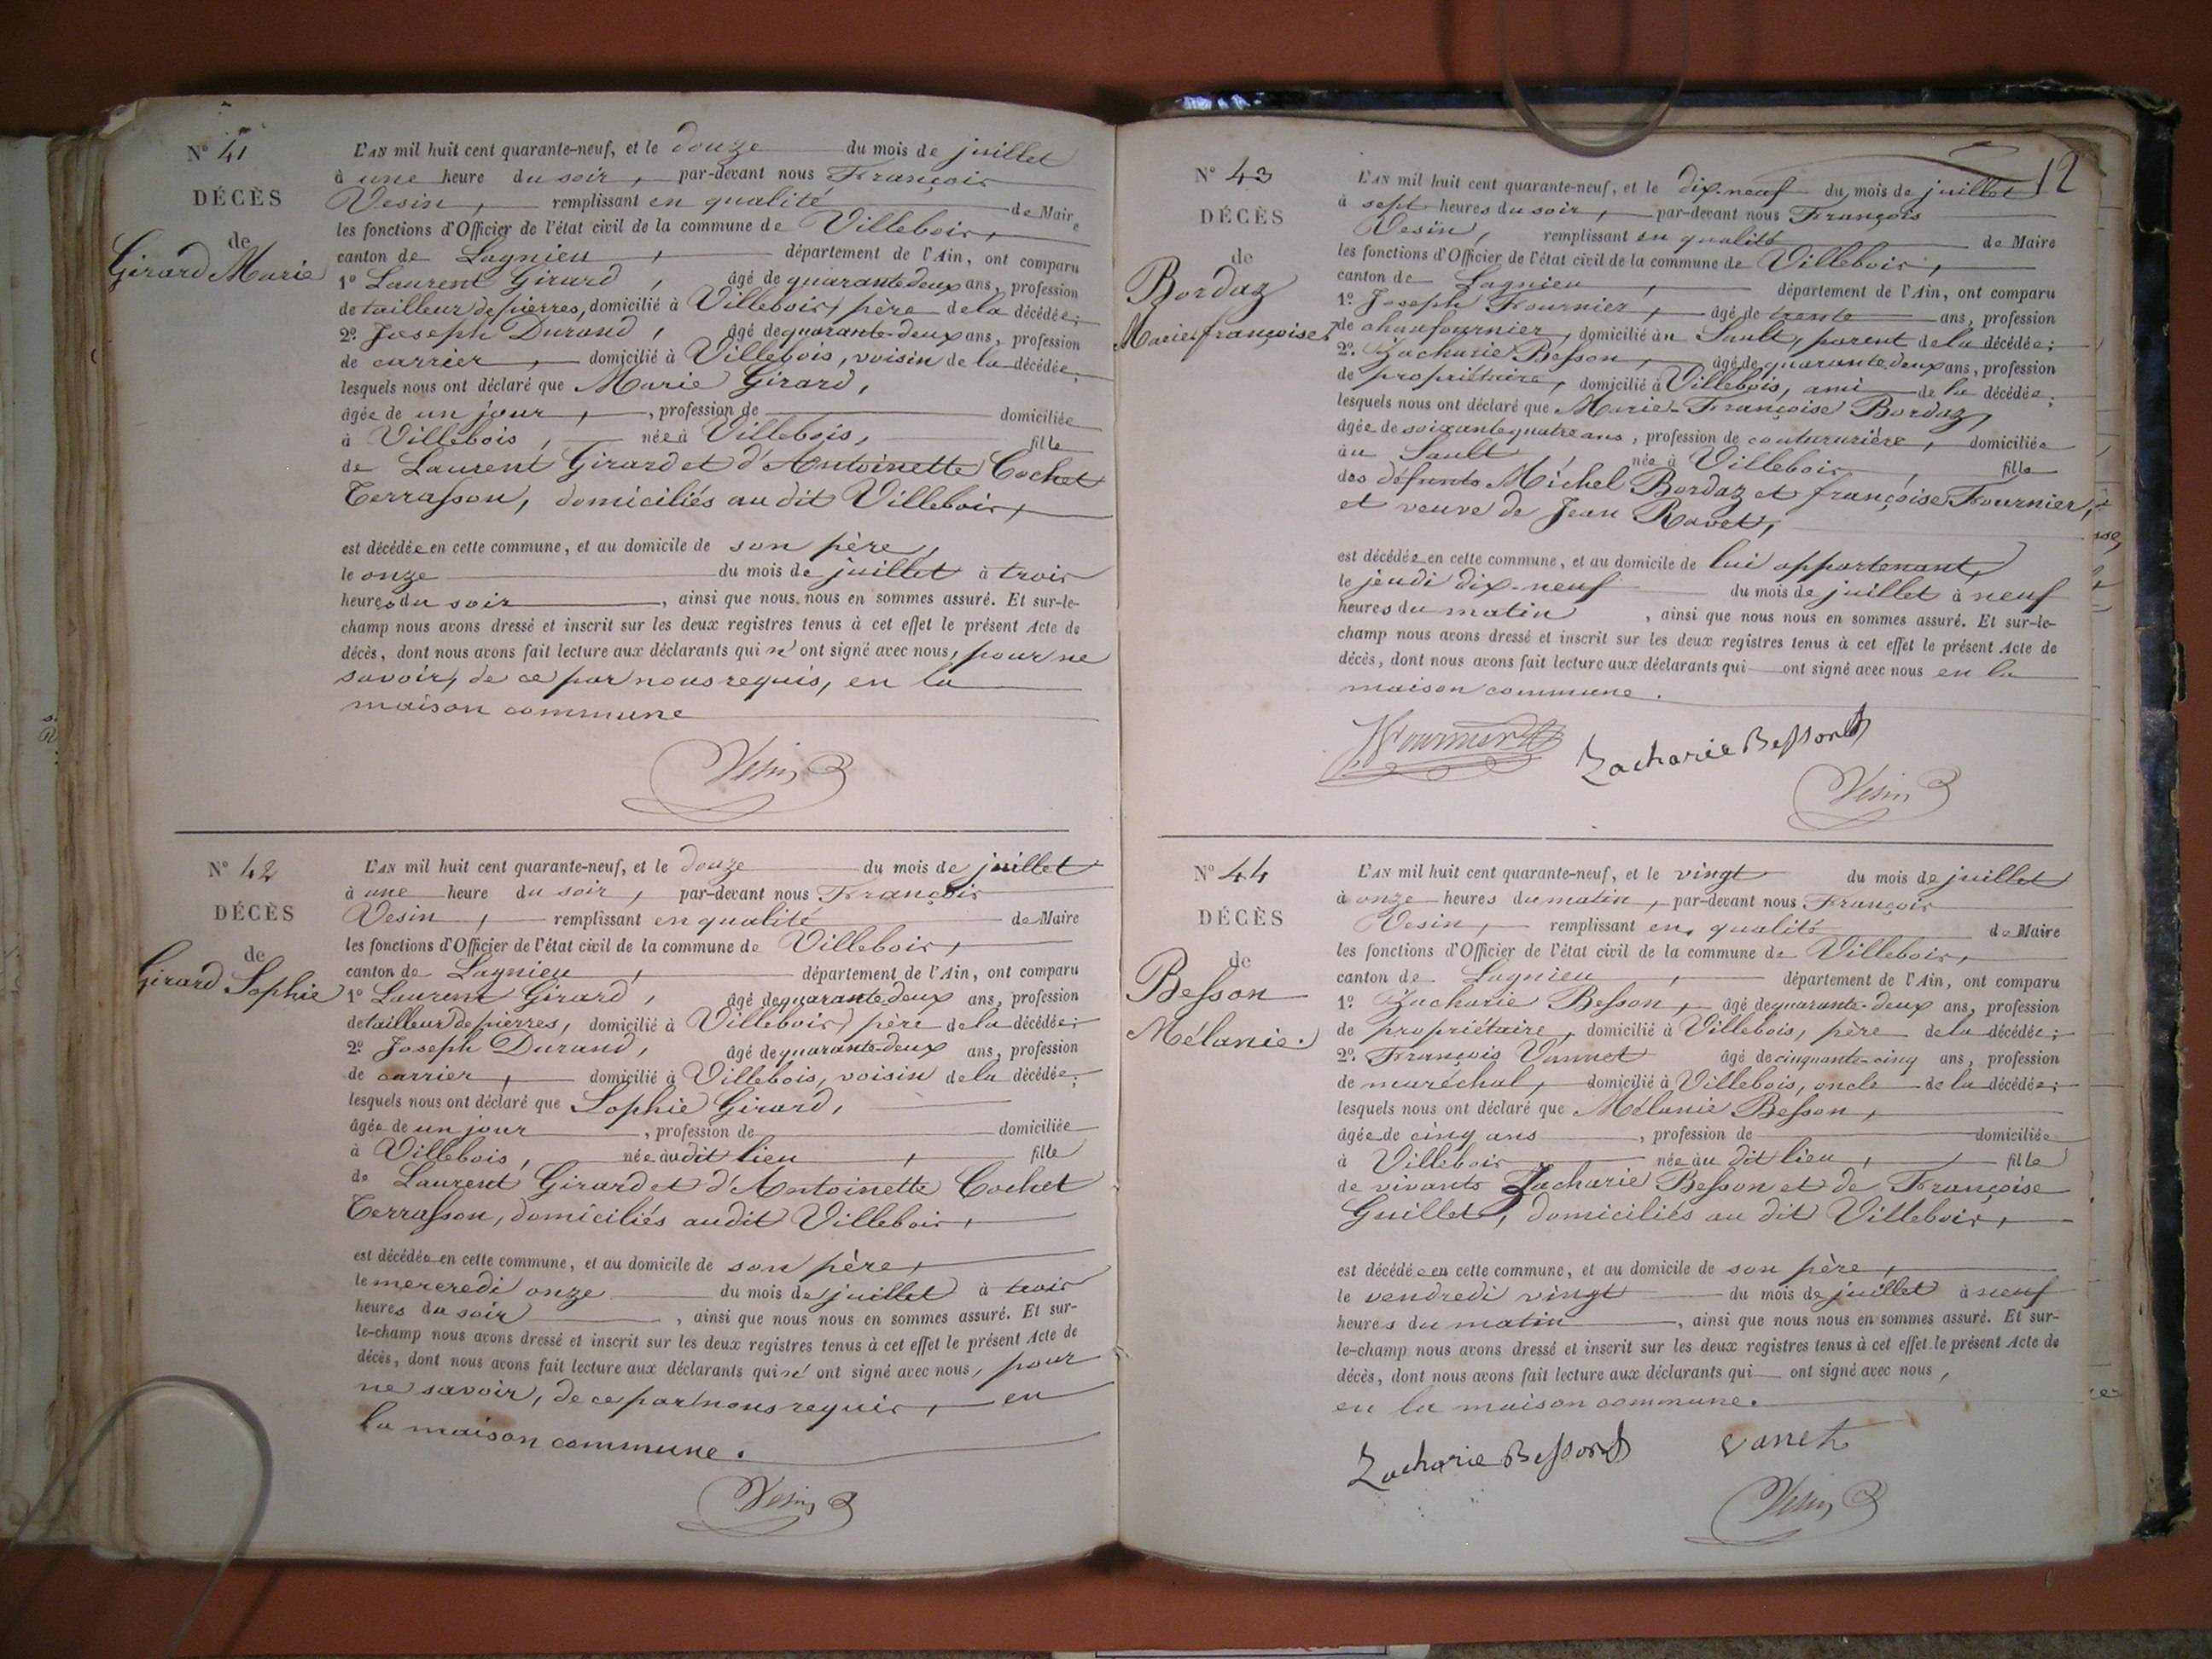 N° 41
DÉCÈS
de
Girard Marie
L'AN mil huit cent quarante-neuf, et le douze du mois de juillet
à une heure du soir, par-devant nous François
Vesin, remplissant en qualité de Maire
les fonctions d'Officier de l'état civil de la commune de Villebois,
canton de Lagnieu, département de l'Ain, ont comparu
1° Laurent Girard, âgé de quarante deux ans, profession
de tailleur de pierres, domicilié à Villebois, père de la décédée;
2° Joseph Durand, âgé de quarante-deux ans, profession
de carrier, domicilié à Villebois, voisin de la décédée;
lesquels nous ont déclaré que Marie Girard,
âgée de un jour, profession de domiciliée
à Villebois, née à Villebois, fille
de Laurent Girard et d'Antoinette Cochet
Terrasson, domiciliés au dit Villebois,
est décédée en cette commune, et au domicile de son père,
le onze du mois de juillet à trois
heures du soir, ainsi que nous nous en sommes assuré. Et sur-le-
champ nous avons dressé et inscrit sur les deux registres tenus à cet effet le présent Acte de
décès, dont nous avons fait lecture aux déclarants qui n'ont signé avec nous, pour ne
savoir, de ce par nous requis, en la
maison commune
Vesin
N° 42
DÉCÈS
de
Girard Sophie
L'AN mil huit cent quarante-neuf, et le douze du mois de juillet
à une heure du soir, par-devant nous François
Vesin, remplissant en qualité de Maire
les fonctions d'Officier de l'état civil de la commune de Villebois,
canton de Lagnieu, département de l'Ain, ont comparu
1° Laurent Girard, âgé de quarante-deux ans, profession
de tailleur de pierres, domicilié à Villebois, père de la décédée;
2° Joseph Durand, âgé de quarante-deux ans, profession
de carrier, domicilié à Villebois, voisin de la décédée;
lesquels nous ont déclaré que Sophie Girard,
âgée de un jour, profession de domiciliée
à Villebois, née au dit lieu, fille
de Laurent Girard et d'Antoinette Cochet
Terrasson, domiciliés audit Villebois,
est décédée en cette commune, et au domicile de son père,
le mercredi onze du mois de juillet à trois
heures du soir, ainsi que nous nous en sommes assuré. Et sur-
le-champ nous avons dressé et inscrit sur les deux registres tenus à cet effet le présent Acte de
décès, dont nous avons fait lecture aux déclarants qui n'ont signé avec nous, pour
ne savoir, de ce par nous requis, en
la maison commune.
Vesin
12
N° 43
DÉCÈS
de
Bordaz
Marie françoise
L'AN mil huit cent quarante-neuf, et le dix-neuf du mois de juillet
à sept heures du soir, par-devant nous François
Vesin, remplissant en qualité de Maire
les fonctions d'Officier de l'état civil de la commune de Villebois,
canton de Lagnieu, département de l'Ain, ont comparu
1° Joseph Fournier, âgé de trente ans, profession
de chaufournier, domicilié au Sault, parent de la décédée;
2° Zacharie Besson, âgé de quarante deux ans, profession
de propriétaire, domicilié à Villebois, ami de la décédée;
lesquels nous ont déclaré que Marie-Françoise Bordaz,
âgée de soixante quatre ans, profession de coutururière, domiciliée
au Sault, née à Villebois, fille
des défunts Michel Bordaz et françoise Fournier,
et veuve de Jean Ravet,
est décédée en cette commune, et au domicile de lui appartenant,
le jeudi dix-neuf du mois de juillet à neuf
heures du matin, ainsi que nous nous en sommes assuré. Et sur-le-
champ nous avons dressé et inscrit sur les deux registres tenus à cet effet le présent Acte de
décès, dont nous avons fait lecture aux déclarants qui ont signé avec nous en la
maison commune.
Fournier Zacharie Besson
Vesin
N° 44
DÉCÈS
de
Besson
Mélanie.
L'AN mil huit cent quarante-neuf, et le vingt du mois de juillet
à onze heures du matin, par-devant nous François
Vesin, remplissant en qualité de Maire
les fonctions d'Officier de l'état civil de la commune de Villebois,
canton de Lagnieu, département de l'Ain, ont comparu
1° Zacharie Besson, âgé de quarante-deux ans, profession
de propriétaire, domicilié à Villebois, père de la décédée;
2° François Vannet âgé de cinquante-cinq ans, profession
de maréchal, domicilié à Villebois, oncle de la décédée;
lesquels nous ont déclaré que Mélanie Besson,
âgée de cinq ans, profession de domiciliée
à Villebois née au dit lieu, fille
de vivants Zacharie Besson et de Françoise
Guillet, domiciliés au dit Villebois,
est décédée en cette commune, et au domicile de son père,
le vendredi vingt du mois de juillet à neuf
heures du matin, ainsi que nous nous en sommes assuré. Et sur-
le-champ nous avons dressé et inscrit sur les deux registres tenus à cet effet le présent Acte de
décès, dont nous avons fait lecture aux déclarants qui ont signé avec nous,
en la maison commune.
Zacharie Besson vanet
Vesin